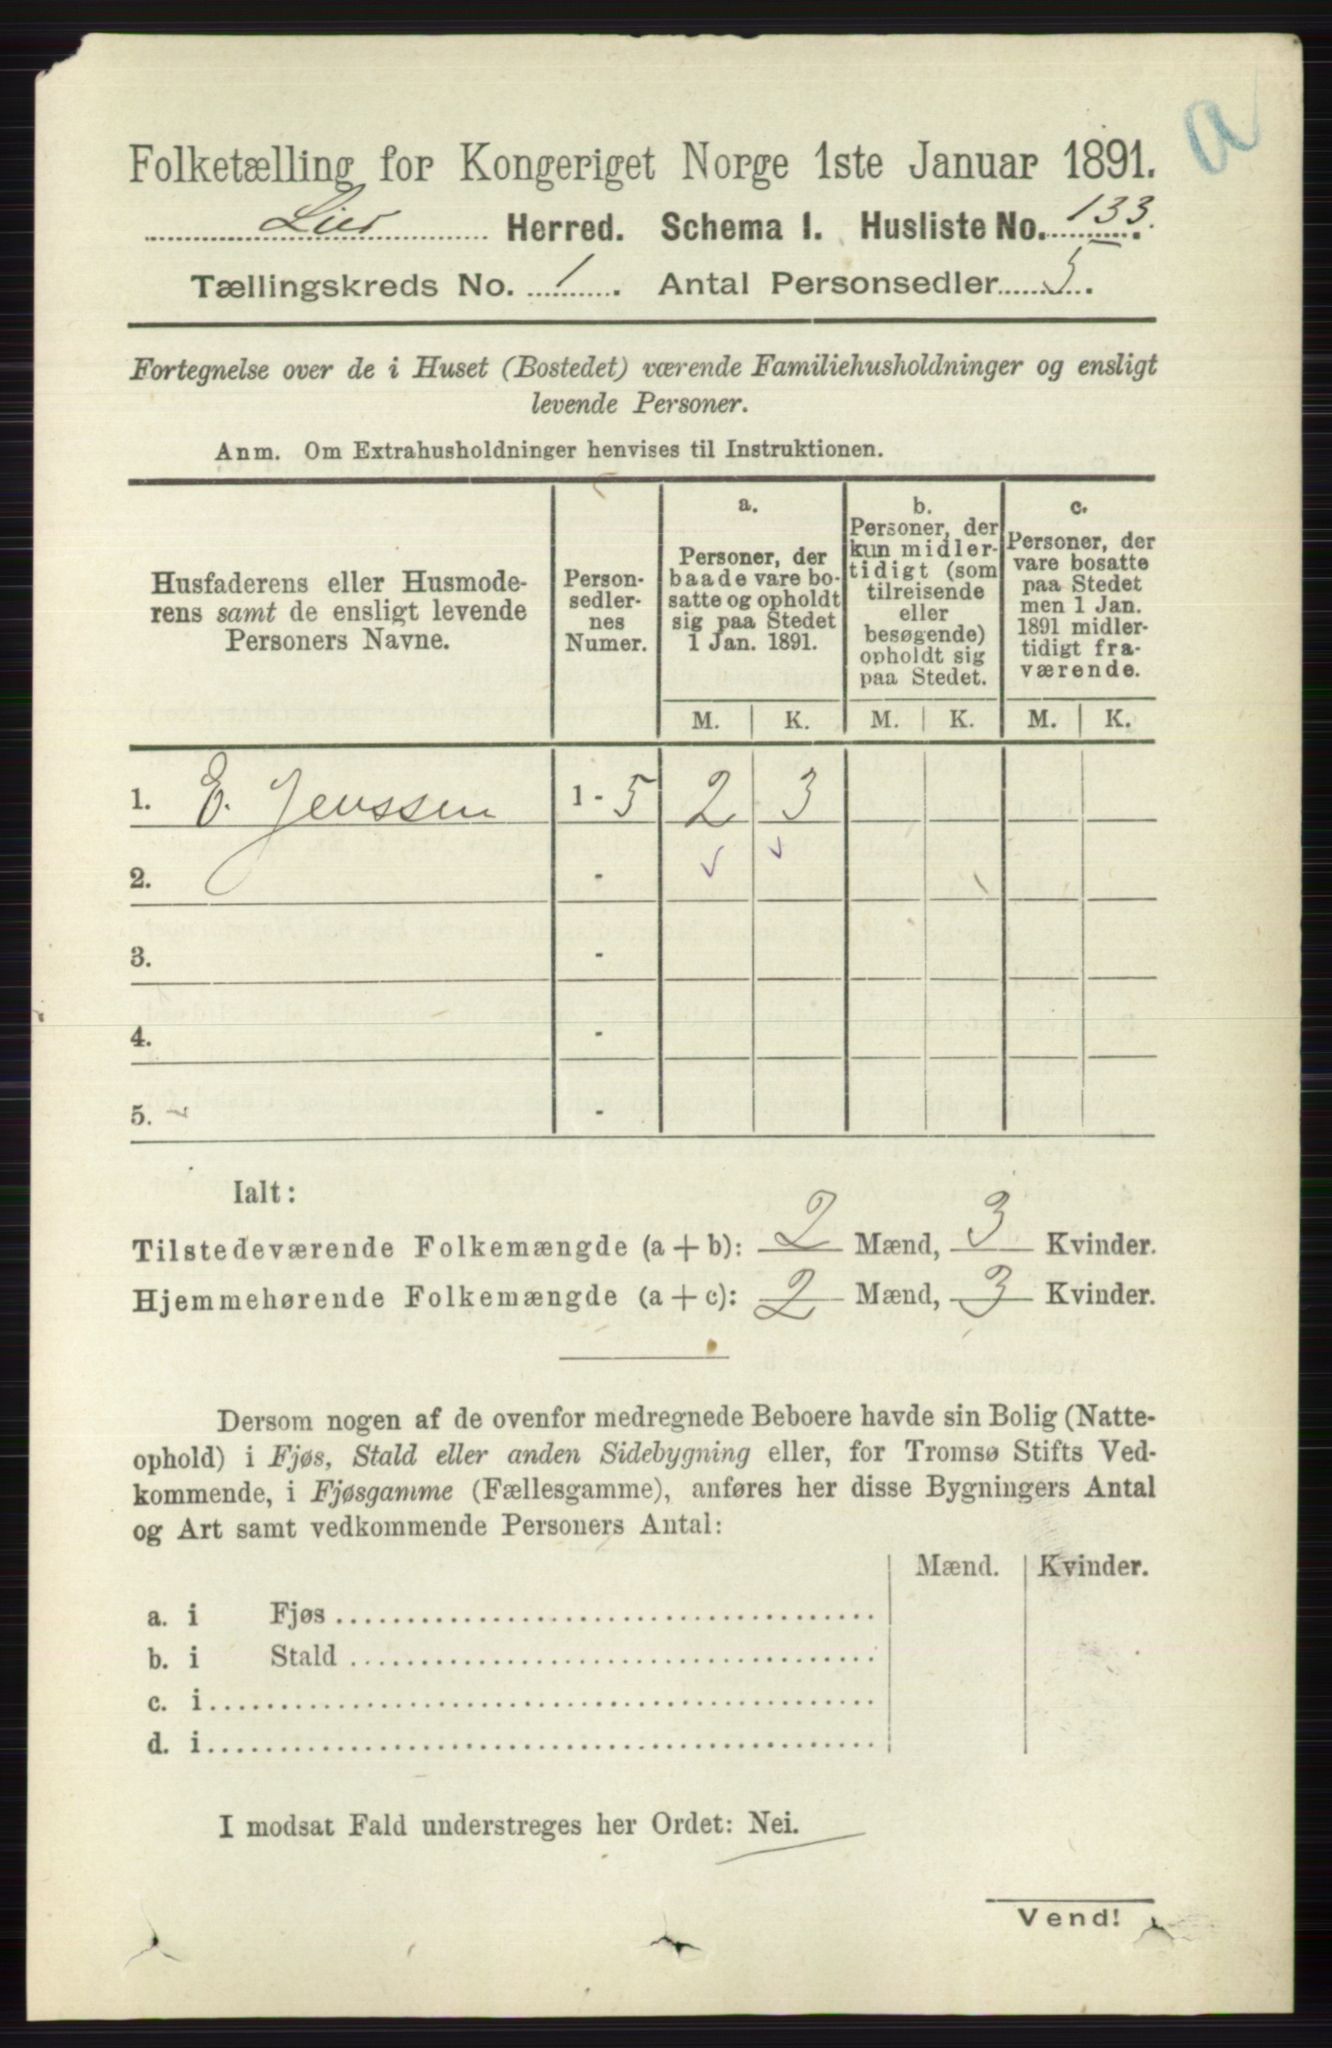 a
Folketælling for Kongeriget Norge 1ste Januar 1891.
Lier Herred. Schema I. Husliste No. 133.
Tællingskreds No. 1. Antal Personsedler 5.
Fortegnelse over de i Huset (Bostedet) værende Familiehusholdninger og ensligt
levende Personer.
Anm. Om Extrahusholdninger henvises til Instruktionen.
Husfaderens eller Husmode-
rens samt de ensligt levende
Personers Navne.
Person-
sedler-
nes
Numer.
a.
Personer, der
baade vare bo-
satte og opholdt
sig paa Stedet
1 Jan. 1891.
b.
Personer, der
kun midler-
tidigt (som
tilreisende
eller
besøgende)
opholdt sig
paa Stedet.
c.
Personer, der
vare bosatte
paa Stedet
men 1 Jan.
1891 midler-
tidigt fra-
værende.
M. K. M. K. M. K.
1. E. Jenssen 1 - 5 2 3
2. -
3. -
4. -
5. -
Ialt:
Tilstedeværende Folkemængde (a + b): 2 Mænd, 3 Kvinder.
Hjemmehørende Folkemængde (a + c): 2 Mænd, 3 Kvinder.
Dersom nogen af de ovenfor medregnede Beboere havde sin Bolig (Natte-
ophold) i Fjøs, Stald eller anden Sidebygning eller, for Tromsø Stifts Ved-
kommende, i Fjøsgamme (Fællesgamme), anføres her disse Bygningers Antal
og Art samt vedkommende Personers Antal:
Mænd. Kvinder.
a. i Fjøs
b. i Stald
c. i
d. i
I modsat Fald understreges her Ordet: Nei.
Vend!